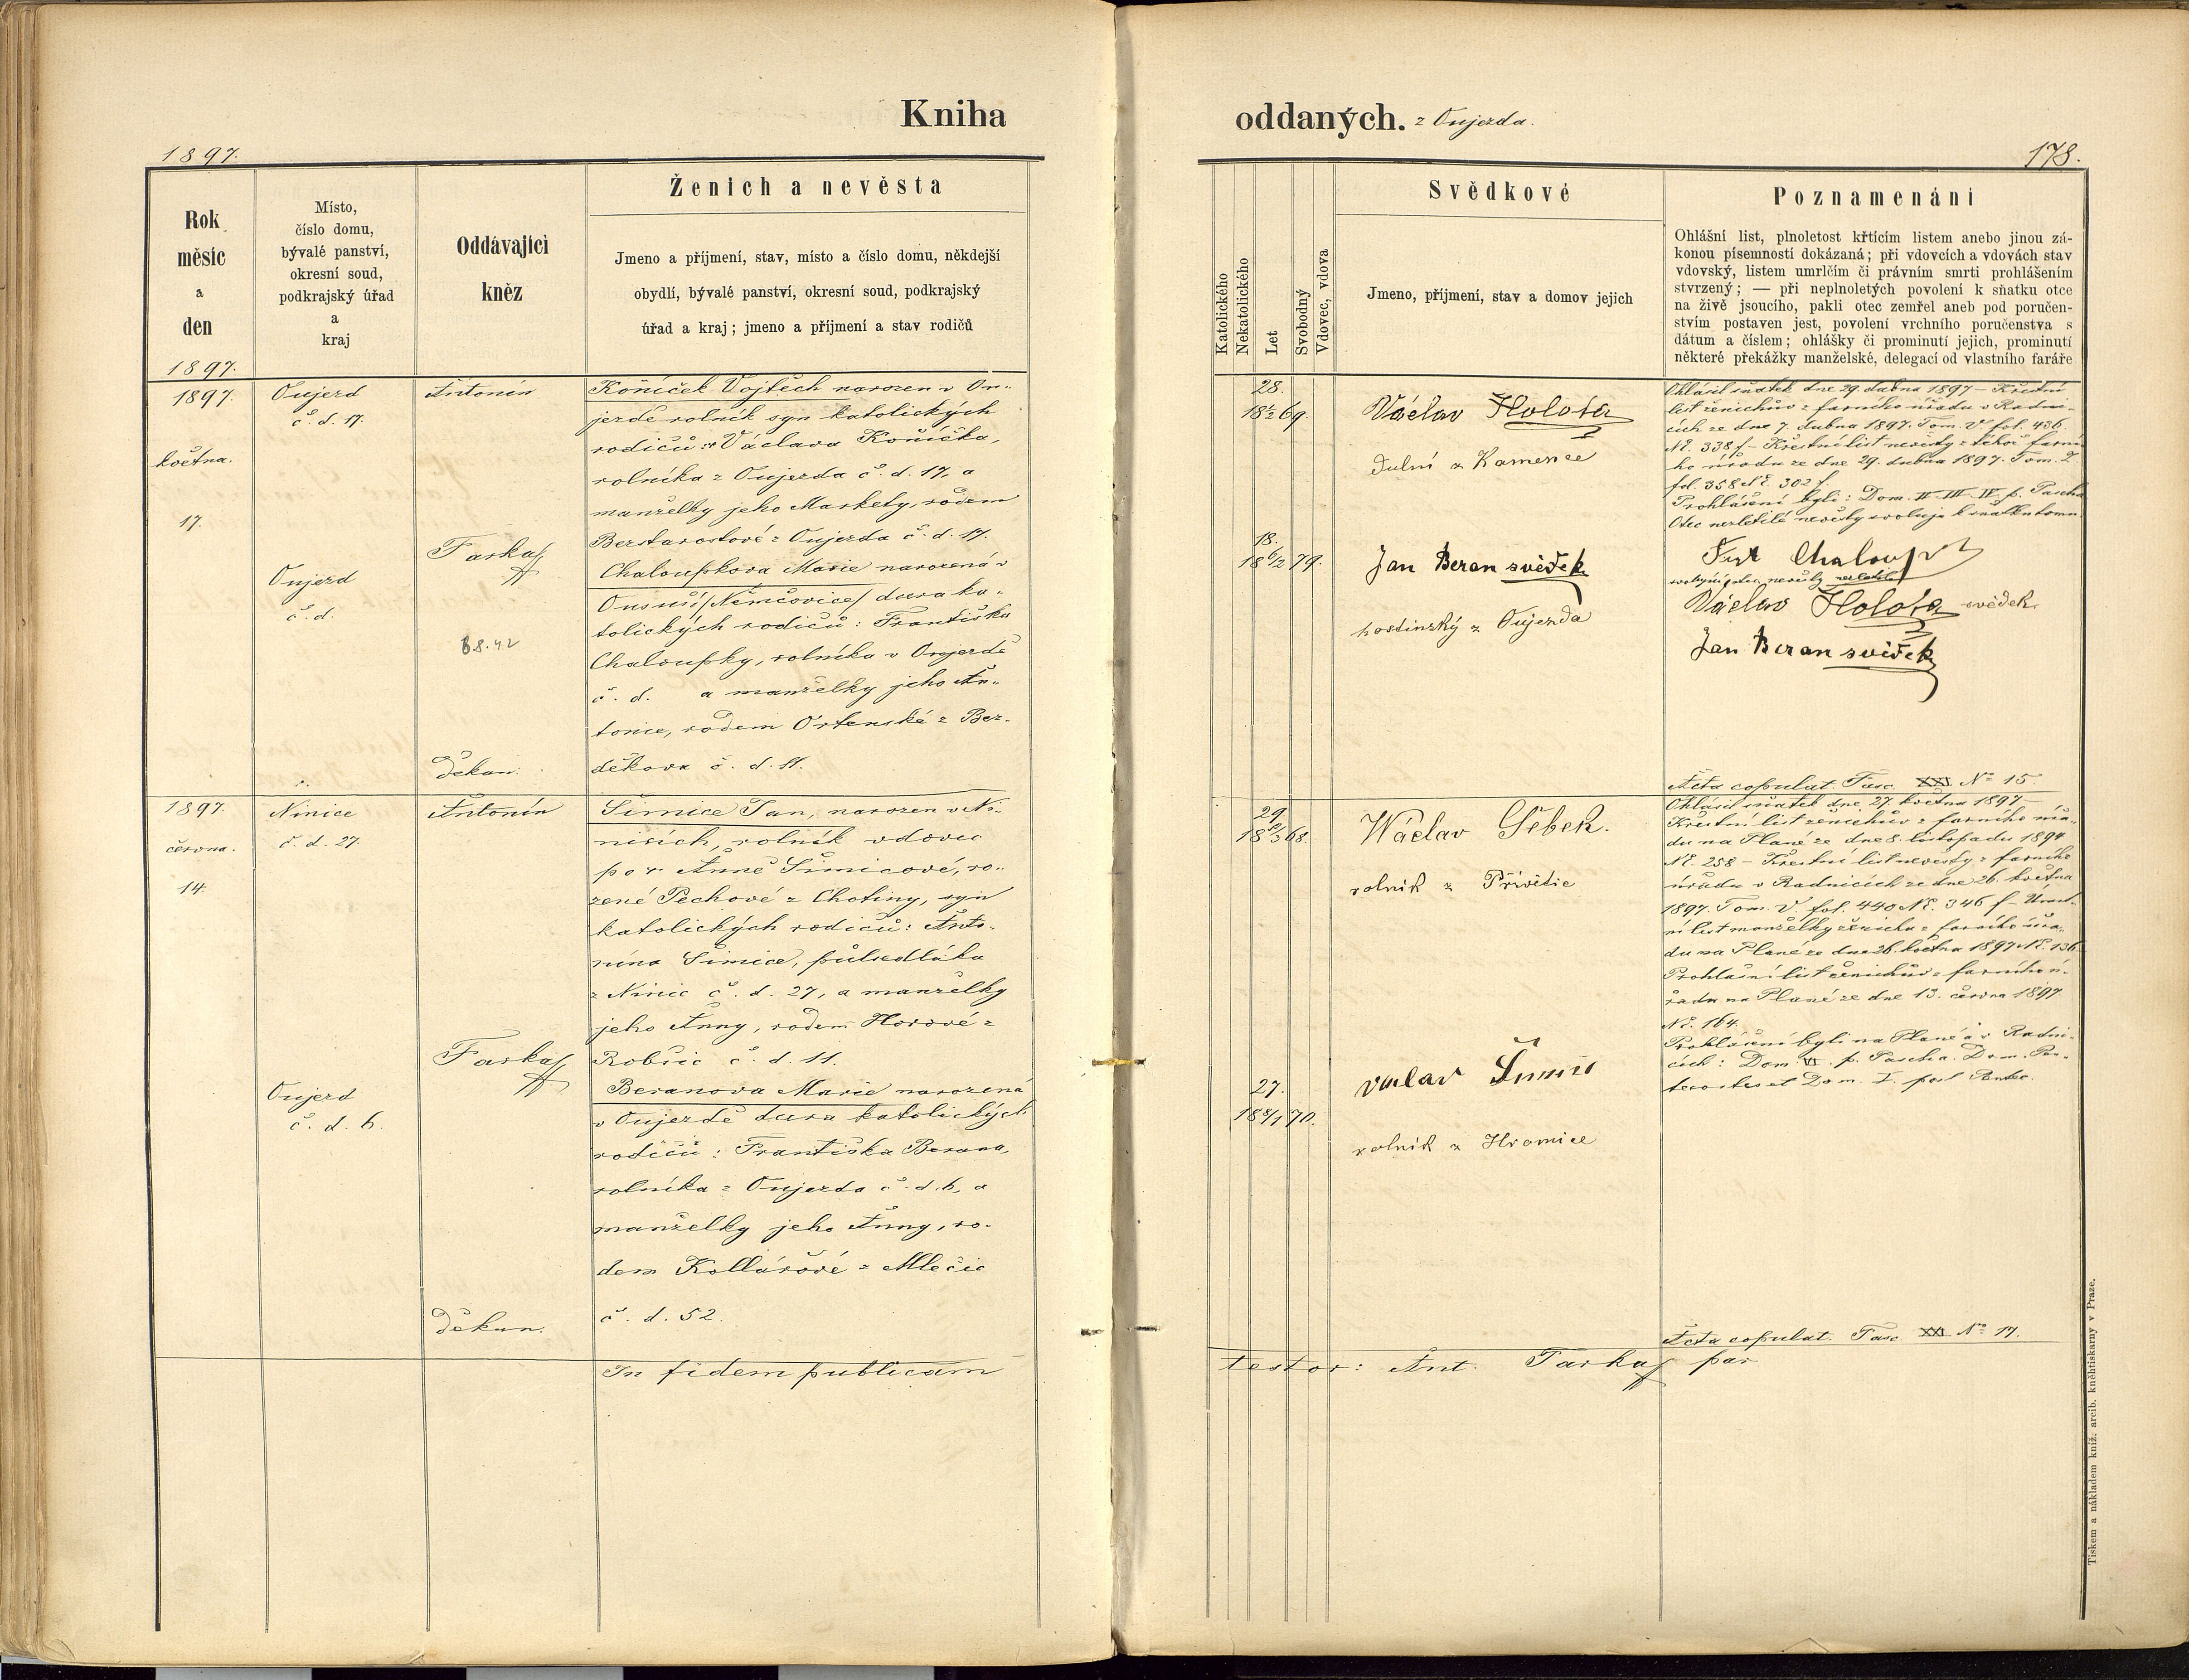 Kniha
1897.
Rok
měsíc
a
den
1897.
Místo,
číslo domu,
bývalé panství,
okresní soud,
podkrajský úřad
a
kraj
Oddávající
kněz
Ženich a nevěsta
Jmeno a příjmení, stav, místo a číslo domu, někdejší
obydlí, bývalé panství, okresní soud, podkrajský
úřad a kraj; jmeno a příjmení a stav rodičů
1897.
května.
17.
Oujezd
č. d. 17.
Oujezd
č. d.
Antonín
Farkač
68.42
děkan.
Koníček Vojtěch narozen v Ou-
jezdě rolník syn katolických
rodičů: Václava Koníčka,
rolníka z Oujezda č. d. 17, a
manželky jeho Markety, rodem
z Oujezda č. d. 17.
Chaloupkova Marie narozená v
/Němčovice/ dcera ka-
tolických rodičů: Františka
Chaloupky, rolníka v Oujezdě
č. d. a manželky jeho An-
tonie, rodem z Bez-
děkova č. d. 11.
1897.
června.
14.
Ninice
č. d. 27.
Oujezd
č. d. 6.
Antonín
Farkač
děkan.
Šimice Jan, narozen v Ni-
nicích, rolník vdovec
po Anně Šimicové, ro-
zené Pechové z Chotiny, syn
katolických rodičů: Anto-
nína Šimice, půlsedláka
z Ninic č. d. 27, a manželky
jeho Anny, rodem Horové z
Robčic č. d. 11.
Beranova Marie narozená
v Oujezdě dcera katolických
rodičů: Františka Berana,
rolníka z Oujezda č. d. 6, a
manželky jeho Anny, ro-
dem Kollářové z Mlečic
č. d. 52.
In fidem publicam
oddaných. z Oujezda.
178.
Katolického
Nekatolického
Let
Svobodný
Vdovec, vdova
Svědkové
Jmeno, příjmení, stav a domov jejich
Poznamenání
Ohlášní list, plnoletost křtícím listem anebo jinou zá-
konou písemností dokázaná; při vdovcích a vdovách stav
vdovský, listem umrlčím či právním smrti prohlášením
stvrzený; — při neplnoletých povolení k sňatku otce
na živě jsoucího, pakli otec zemřel aneb pod poručen-
stvím postaven jest, povolení vrchního poručenstva s
dátum a číslem; ohlášky či prominutí jejich, prominutí
některé překážky manželské, delegací od vlastního faráře
28.
18 69.
Václav Holota
Dulní z Kamence
18.
18 6/2 79.
Jan Beran svědek
hostinský z Oujezda
Ohlásil sňatek dne 29. dubna 1897 – Křestní
list ženichův z farního úřadu v Radni-
cích ze dne 7. dubna 1897. Tom. V fol. 436.
Nč. 338 f – Křestní list nevěsty z téhož farní-
ho úřadu ze dne 29. dubna 1897. Tom. Z
fol. 358 Nč. 302 f.
Prohlášeni byli: Dom. II III IV p. Pascha
Otec nezletilé nevěsty svoluje k sňatku tomu.
Chaloupka
Václav Holota svědek.
Jan Beran svědek
Acta copulat. Fasc XXI No 15.
29.
18 68.
Wáclav Šebek.
rolník z Přívětic
27.
18 8/1 70.
rolník z Hromice
Ohlásil sňatek dne 27. května 1897 –
Křestní list ženichův z farního úřa-
du na Plané ze dne 8. listopadu 1894
Nč. 258 – Křestní list nevěsty z farního
úřadu v Radnicích ze dne 26. května
1897. Tom. V. fol. 440 Nč. 346 f – Úmrt-
ní list manželky ženicha z farního úřa-
du na Plané ze dne 26. května 1897 Nč. 136
Prohlašní list ženichův z farního ú-
řadu na Plané ze dne 13. června 1897.
Nč. 164.
Prohlášeni byli na Plané a v Radni-
cích: Dom. VI. p. Pascha. Dom. Pen-
tecostes et Dom. I. post Pentec.
Acta copulat. Fasc XXI No 17.
testor: Ant. Farkač par
Tiskem a nákladem kníž. arcib. kněhtiskarny v Praze.